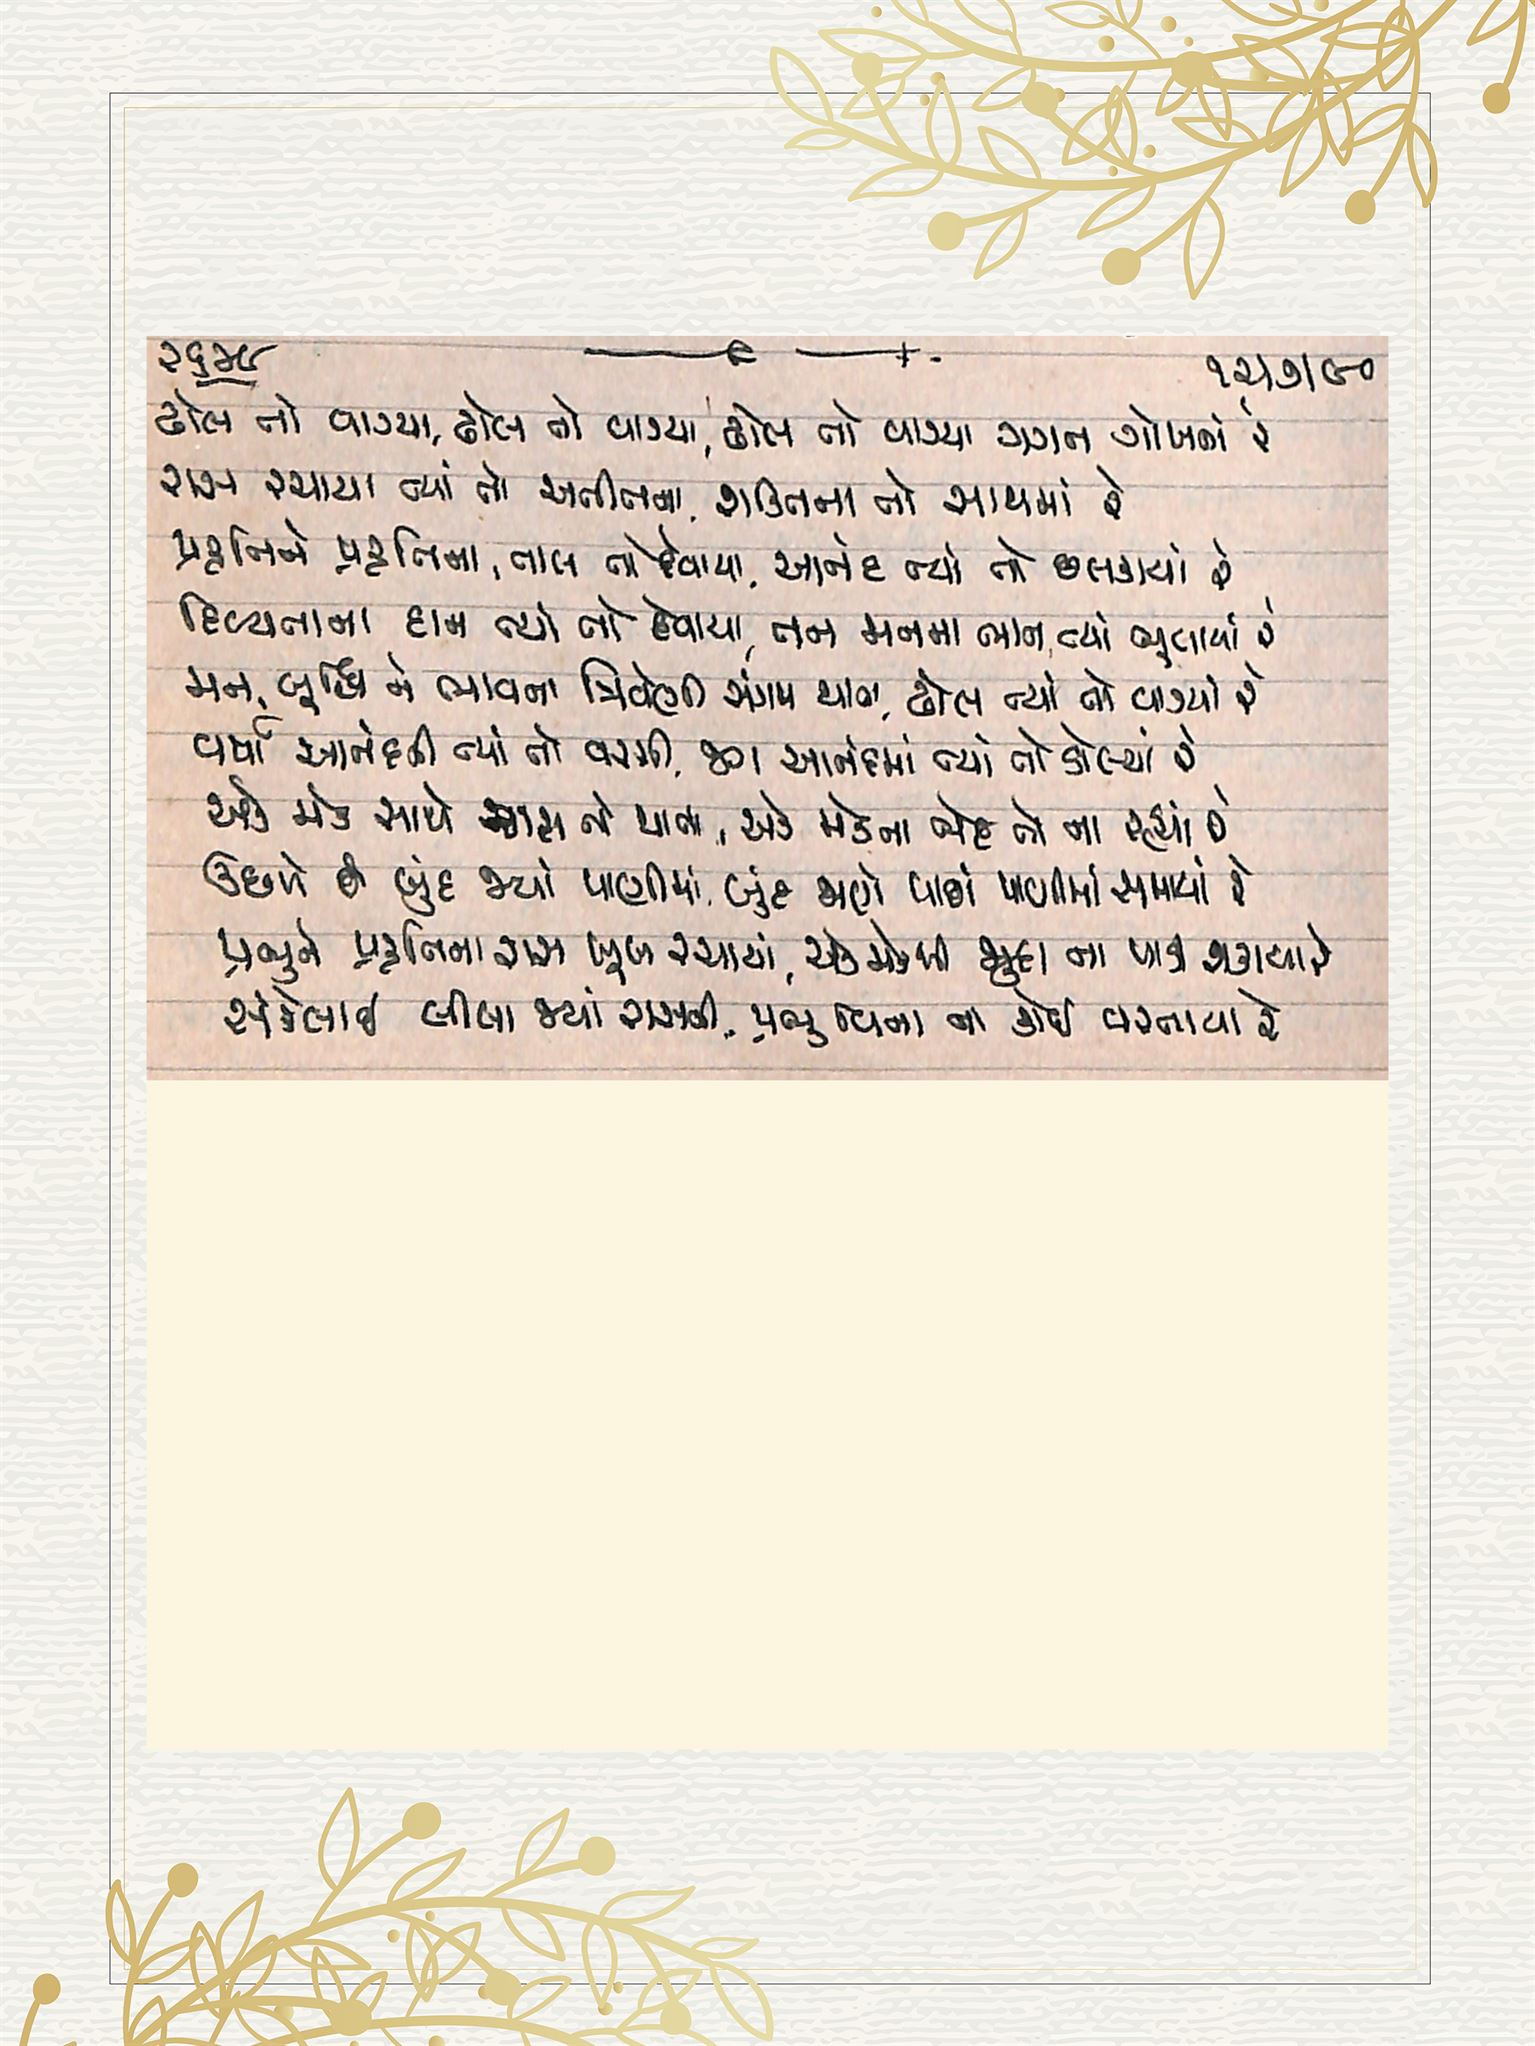 ૨૬૩૯
૧૨/૭/૯૦
ઢોલ તો વાગ્યા, ઢોલ તો વાગ્યા, ઢોલ તો વાગ્યા ગગન ગોખમાં રે
રાસ રચાયા ત્યાં તો અતીતના, શક્તિના તો સાથમાં રે
પ્રકૃતિને પ્રકૃતિના, તાલ તો દેવાયા, આનંદ ત્યાં તો છલકાયાં રે
દિવ્યતાના દાન ત્યાં તો દેવાયા, તન મનના ભાન ત્યાં ભૂલાયાં રે
મન, બુદ્ધિ ને ભાવના ત્રિવેણી સંગમ થાતા, ઢોલ ત્યાં તો વાગ્યાં રે
વર્ષા આનંદની ત્યાં તો વરસી, જગ આનંદમાં ત્યાં તો ડોલ્યાં રે
એક મેક સાથે રાસ તો થાતા, એક મેકના ભેદ તો ના રહ્યાં રે
ઉછળે છે બુંદ જ્યાં પાણીમાં, બુંદ જાણે પાછાં પાણીમાં સમાયાં રે
પ્રભુને પ્રકૃતિના રાસ ખૂબ રચાયાં, એક મેકથી જુદા ના પાડી શકાયા રે
સંકેલાઈ લીલા જ્યાં રાસની, પ્રભુ વિના ના કોઈ વરતાયા રે